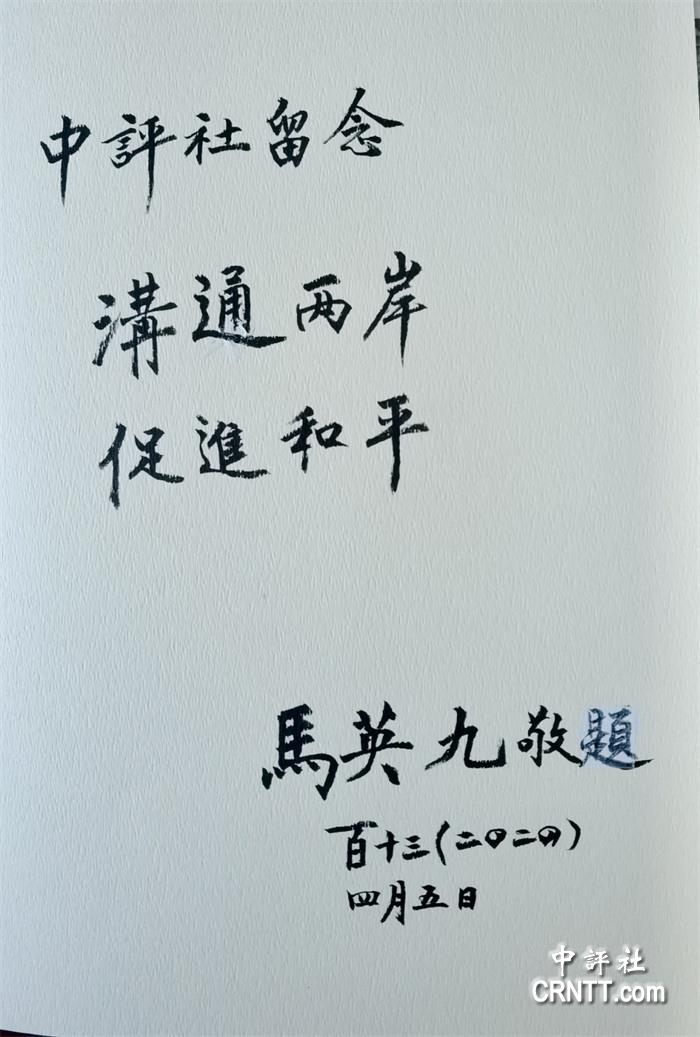 中評社留念
溝通两岸
促進和平
馬英九敬題
百十三(二〇二四)
四月五日
中評社
CRNTT.com